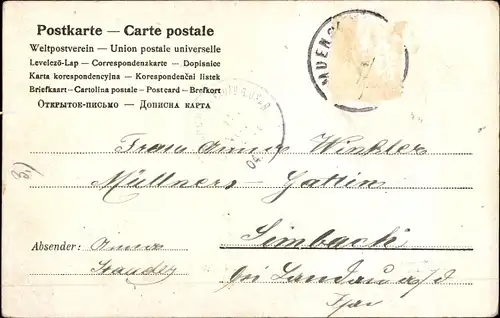 Postkarte — Carte postale
Weltpostverein — Union postale universelle
Levelező-Lap — Correspondenzkarte — Dopisnice
Karta korespondencyjna — Korespondenční lístek
Briefkaart — Cartolina postale — Postcard — Brefkort
Открытое-письмо — Дописна карта
MUENC
04
Frau Anna Winkler
Müllners-Gattin
Absender: Anna
Simbach
Stauder
bei Landau a/d
Isar